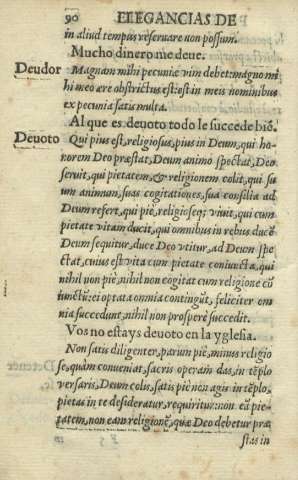 90 ELEGANCIAS DE
in aliud tempus reseruare non possum.
Mucho dinero me deue.
Deudor
Magnam mihi pecuniæ vim debet: magno mi
hi meo ære obstrictus est: est in meis nominibus
ex pecunia satis multa.
Al que es deuoto todo le succede biẽ.
Deuoto
Qui pius est, religiosus, pius in Deum, qui ho-
norem Deo præstat, Deum animo spectat, Deo
seruit, qui pietatem, & religionem colit, qui su
um animum, suas cogitationes, sua consilia ad
Deum refert, qui piè, religioseq; viuit, qui cum
pietate vitam ducit, qui omnibus in rebus ducẽ
Deum sequitur, duce Deo vtitur, ad Deum spe
ctat, cuius est vita cum pietate coniuncta, qui
nihil non piè, nihil non cogitat cum religione cõ
iunctũ: ei optata omnia contingũt, feliciter om
nia succedunt, nihil non prosperè succedit.
Vos no estays deuoto en la yglesia.
Non satis diligenter, parum piè, minus religio
se, quàm conueniat, sacris operam das, in tẽplo
versaris, Deum colus, satis piè non agis in tẽplo,
pietas in te desideratur, requiritur: non eã pie-
tatem, non eam religionẽ, quæ Deo debetur præ
stas in